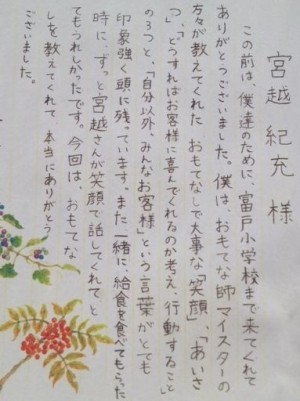 宮越紀充様
この前は、僕達のために富戸小学校まで来てくれて
ありがとうございました。僕は、おもてな師マイスターの
方々が教えてくれたおもてなしで大事な「笑顔」、「あいさ
つ」、「どうすればお客様に喜んでくれるのか考え、行動すること」
の3つと、「自分以外、みんなお客様」という言葉がとても
印象強く頭に残っています。また一緒に、給食を食べてもらった
時に、ずっと宮越さんが笑顔で話してくれて、と
てもうれしかったです。今回は、おもてな
しを教えてくれて本当にありがとう
ございました。